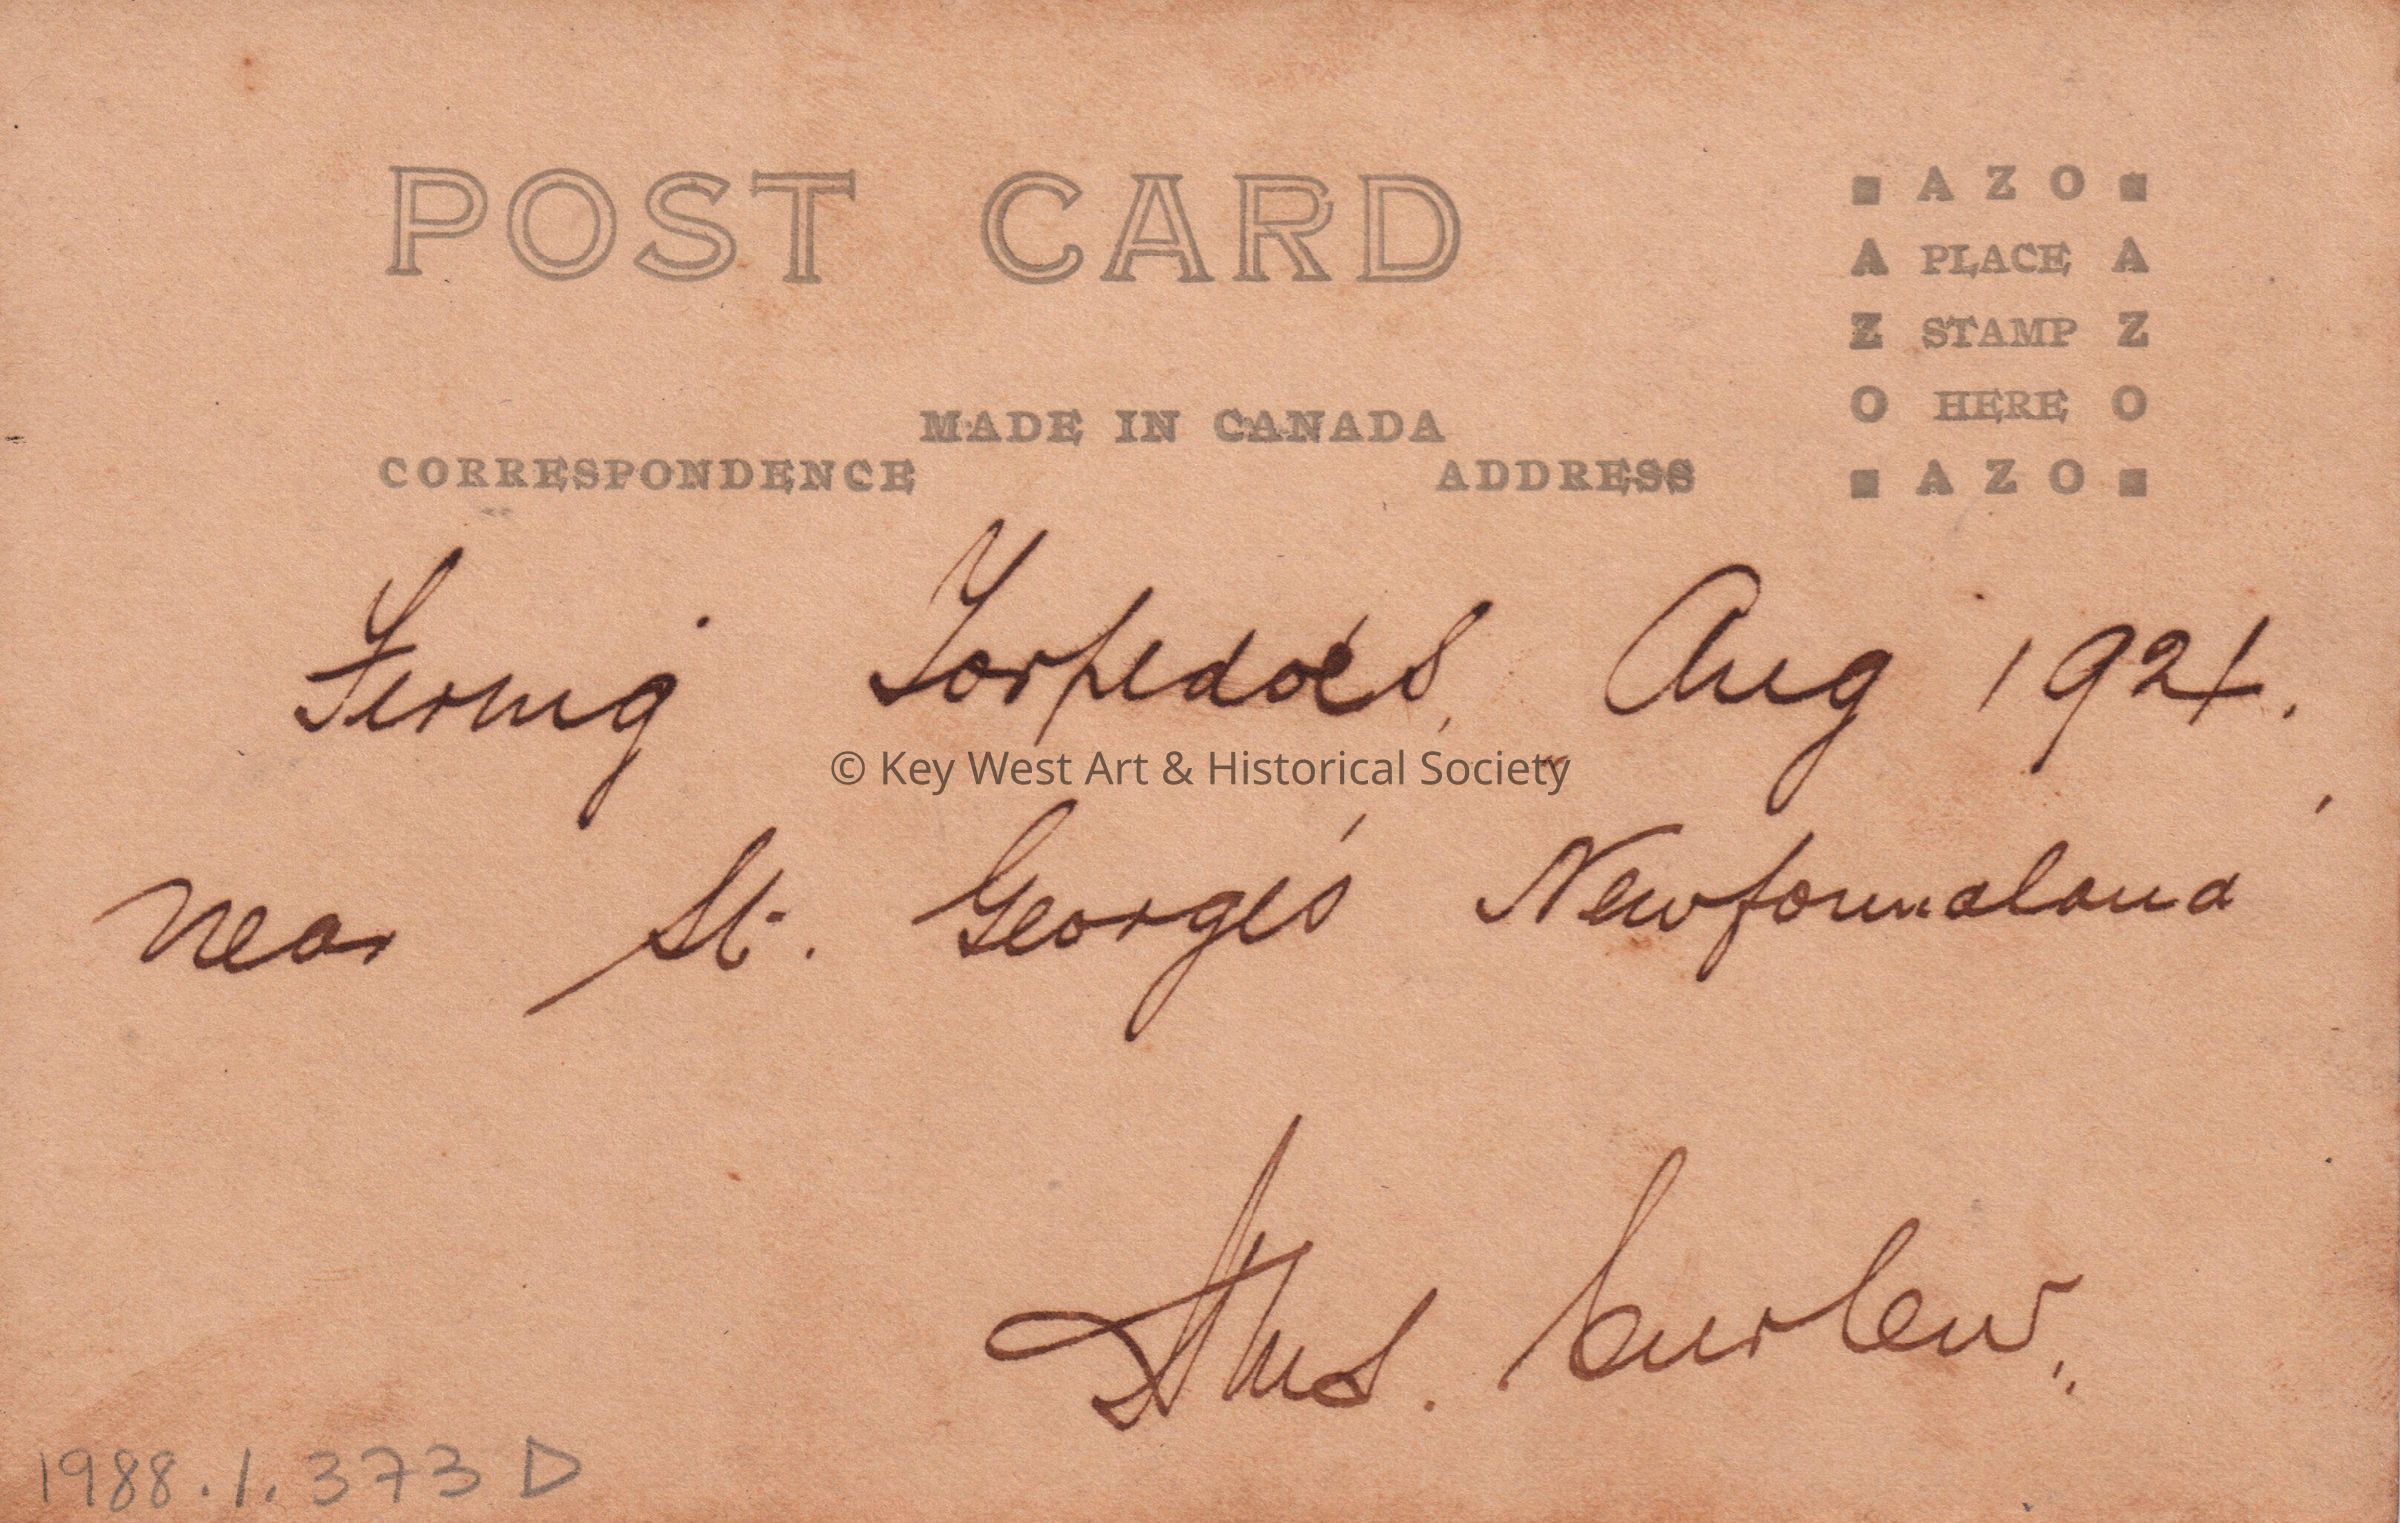 POST CARD
■ AZO ■
A PLACE A
Z STAMP Z
O HERE O
■ AZO ■
MADE IN CANADA
CORRESPONDENCE ADDRESS
Firing Torpedoes, Aug 1921.
© Key West Art & Historical Society
near St. George's Newfoundland
Hms. Curlew.
1988.1.373 D